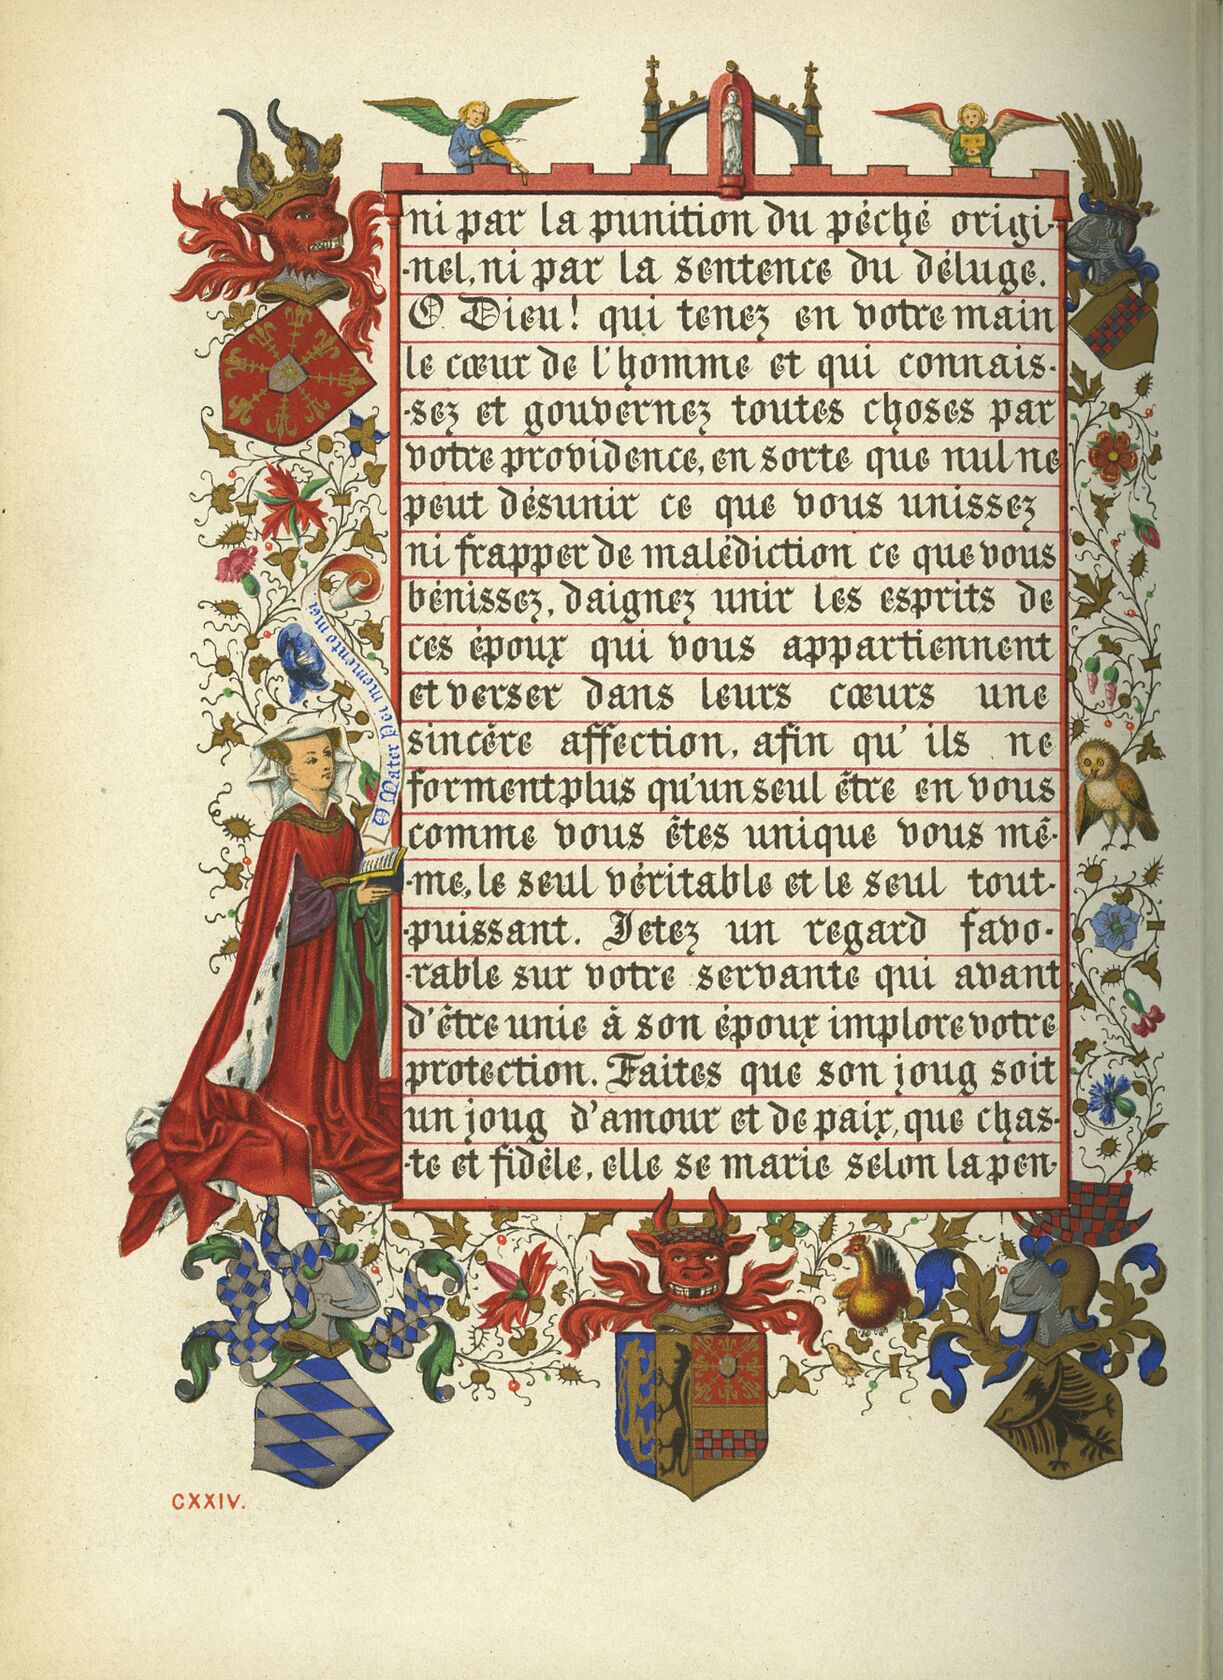 ni par la punition du péché origi-
-nel, ni par la sentence du déluge.
O Dieu! qui tenez en votre main
le cœur de l'homme et qui connais-
-sez et gouvernez toutes choses par
votre providence, en sorte que nul ne
peut désunir ce que vous unissez
ni frapper de malédiction ce que vous
bénissez, daignez unir les esprits de
ces époux qui vous appartiennent
et verser dans leurs cœurs une
sincère affection, afin qu'ils ne
forment plus qu'un seul être en vous
comme vous êtes unique vous mê-
-me, le seul véritable et le seul tout-
-puissant. Jetez un regard favo-
-rable sur votre servante qui avant
d'être unie à son époux implore votre
protection. Faites que son joug soit
un joug d'amour et de paix, que chas-
-te et fidèle, elle se marie selon la pen-
O Mater Dei memento mei
CXXIV.